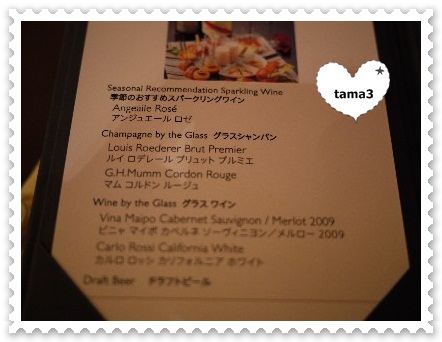 tama3
Seasonal Recommendation Sparkling Wine
季節のおすすめスパークリングワイン
Angeaile Rosé
アンジュエール ロゼ
Champagne by the Glass グラスシャンパン
Louis Roederer Brut Premier
ルイ ロデレール ブリュット プルミエ
G.H.Mumm Cordon Rouge
マム コルドン ルージュ
Wine by the Glass グラス ワイン
Vina Maipo Cabernet Sauvignon / Merlot 2009
ビニャ マイポ カベルネ ソーヴィニヨン／メルロー 2009
Carlo Rossi California White
カルロ ロッシ カリフォルニア ホワイト
Draft Beer ドラフトビール